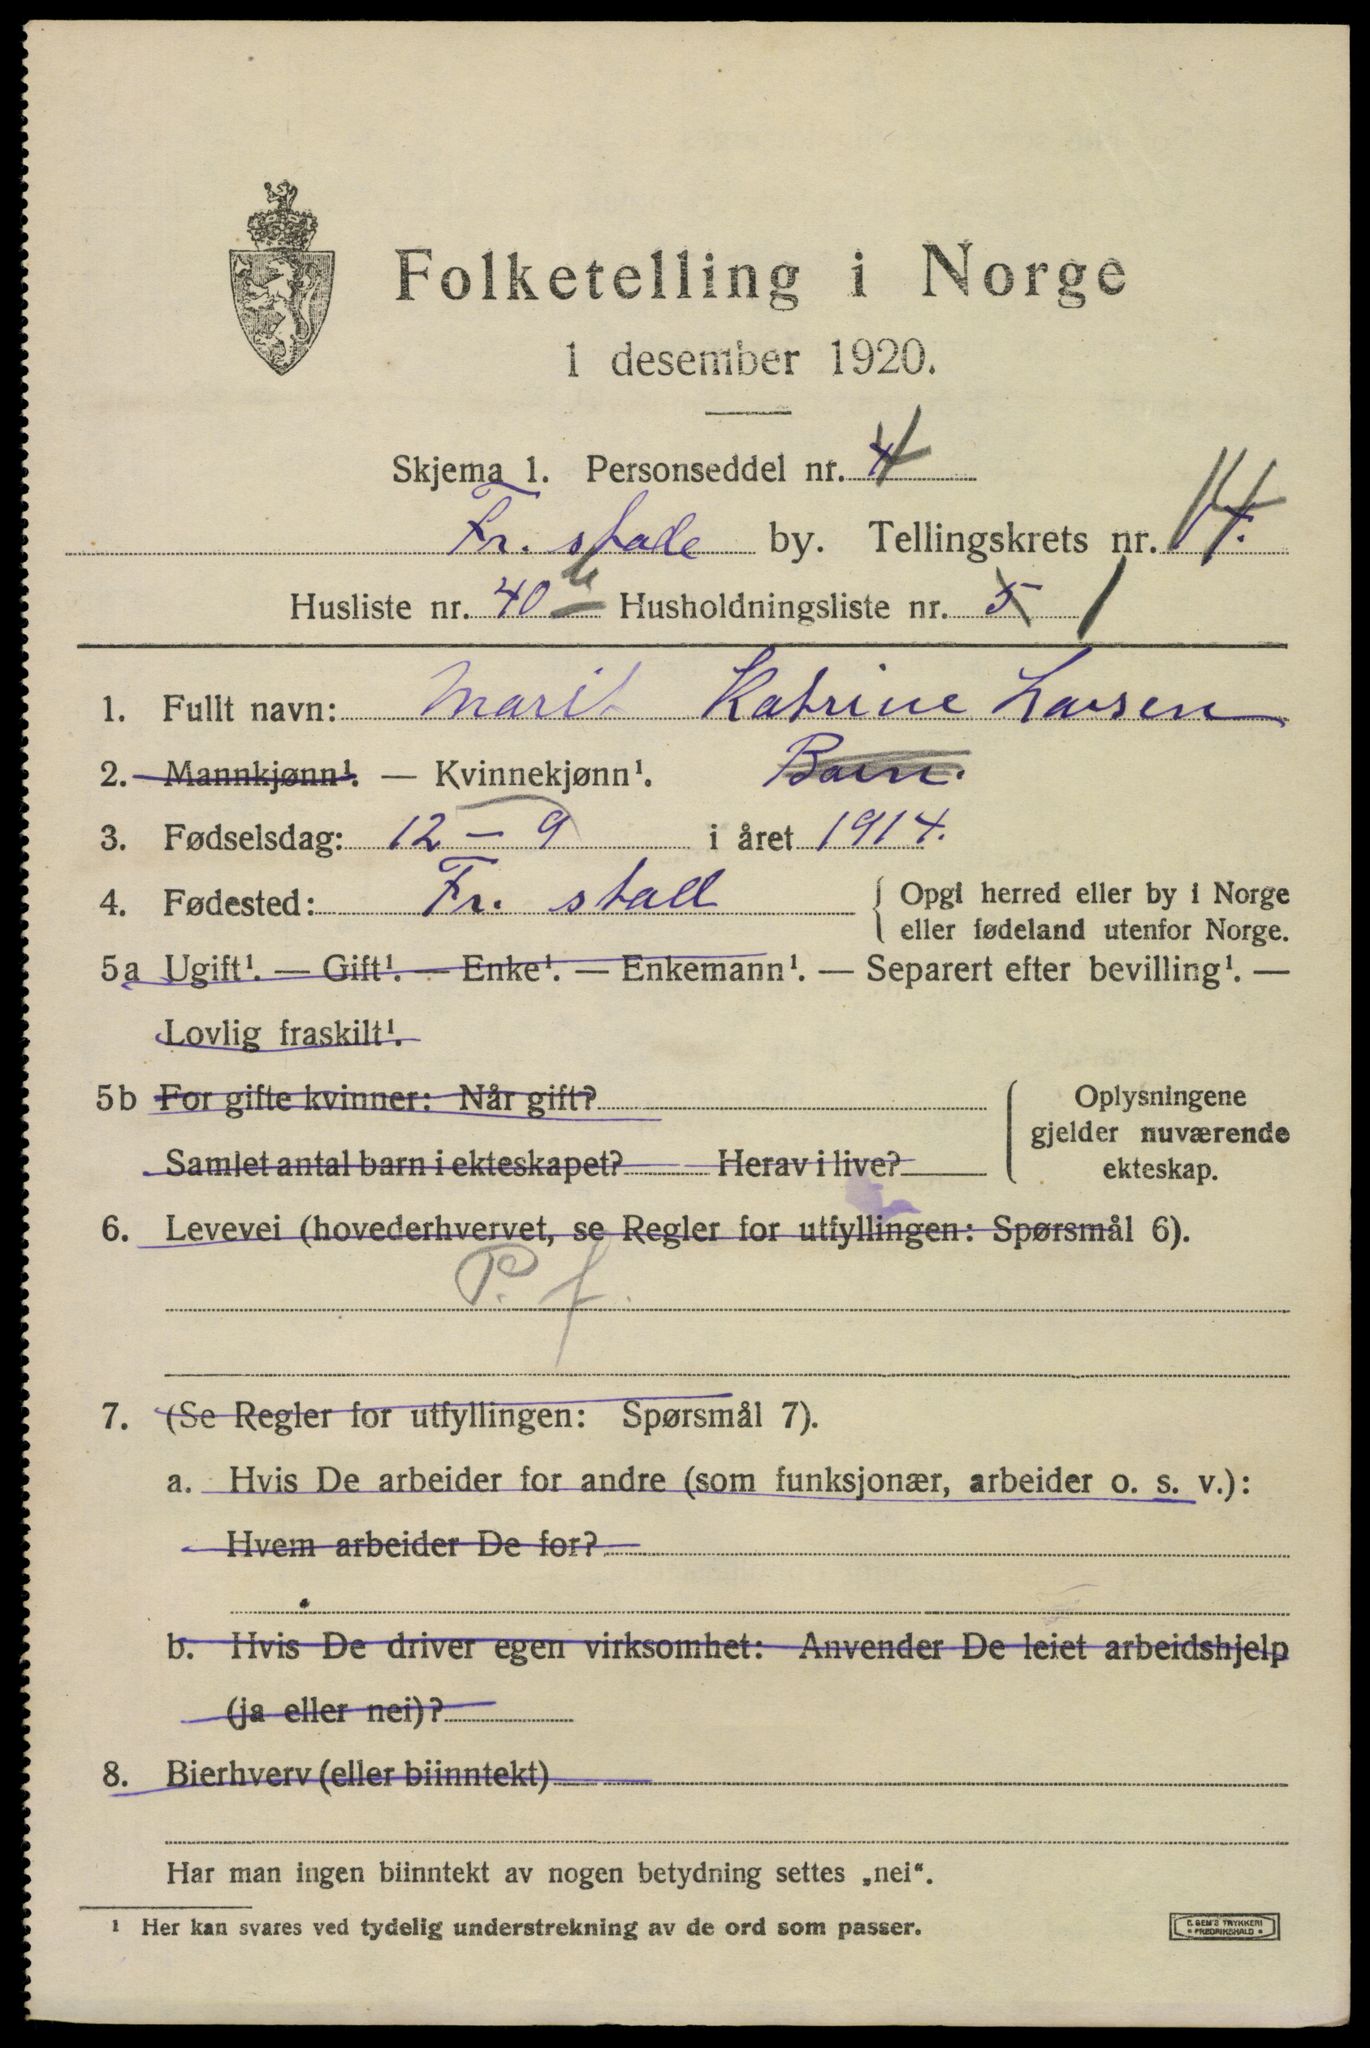 Folketelling i Norge
1 desember 1920.
Skjema 1. Personseddel nr. 4
Fr. stad by. Tellingskrets nr. 14.
Husliste nr. 40 Husholdningsliste nr. 5 1
1. Fullt navn: Marit Katrine Larsen
2. Mannkjønn¹. — Kvinnekjønn¹. Barn.
3. Fødselsdag: 12 – 9 i året 1914.
4. Fødested: Fr. stad { Opgi herred eller by i Norge
eller fødeland utenfor Norge.
5a Ugift¹. — Gift¹. — Enke¹. — Enkemann¹. — Separert efter bevilling¹. —
Lovlig fraskilt¹.
5b For gifte kvinner: Når gift?
Samlet antal barn i ekteskapet? Herav i live?
Oplysningene
gjelder nuværende
ekteskap.
6. Levevei (hovederhvervet, se Regler for utfyllingen: Spørsmål 6).
P. f.
7. (Se Regler for utfyllingen: Spørsmål 7).
a. Hvis De arbeider for andre (som funksjonær, arbeider o. s. v.):
Hvem arbeider De for?
b. Hvis De driver egen virksomhet: Anvender De leiet arbeidshjelp
(ja eller nei)?
8. Bierhverv (eller biinntekt)
Har man ingen biinntekt av nogen betydning settes „nei“.
¹ Her kan svares ved tydelig understrekning av de ord som passer.
E. SEM'S TRYKKERI
• FREDRIKSHALD •